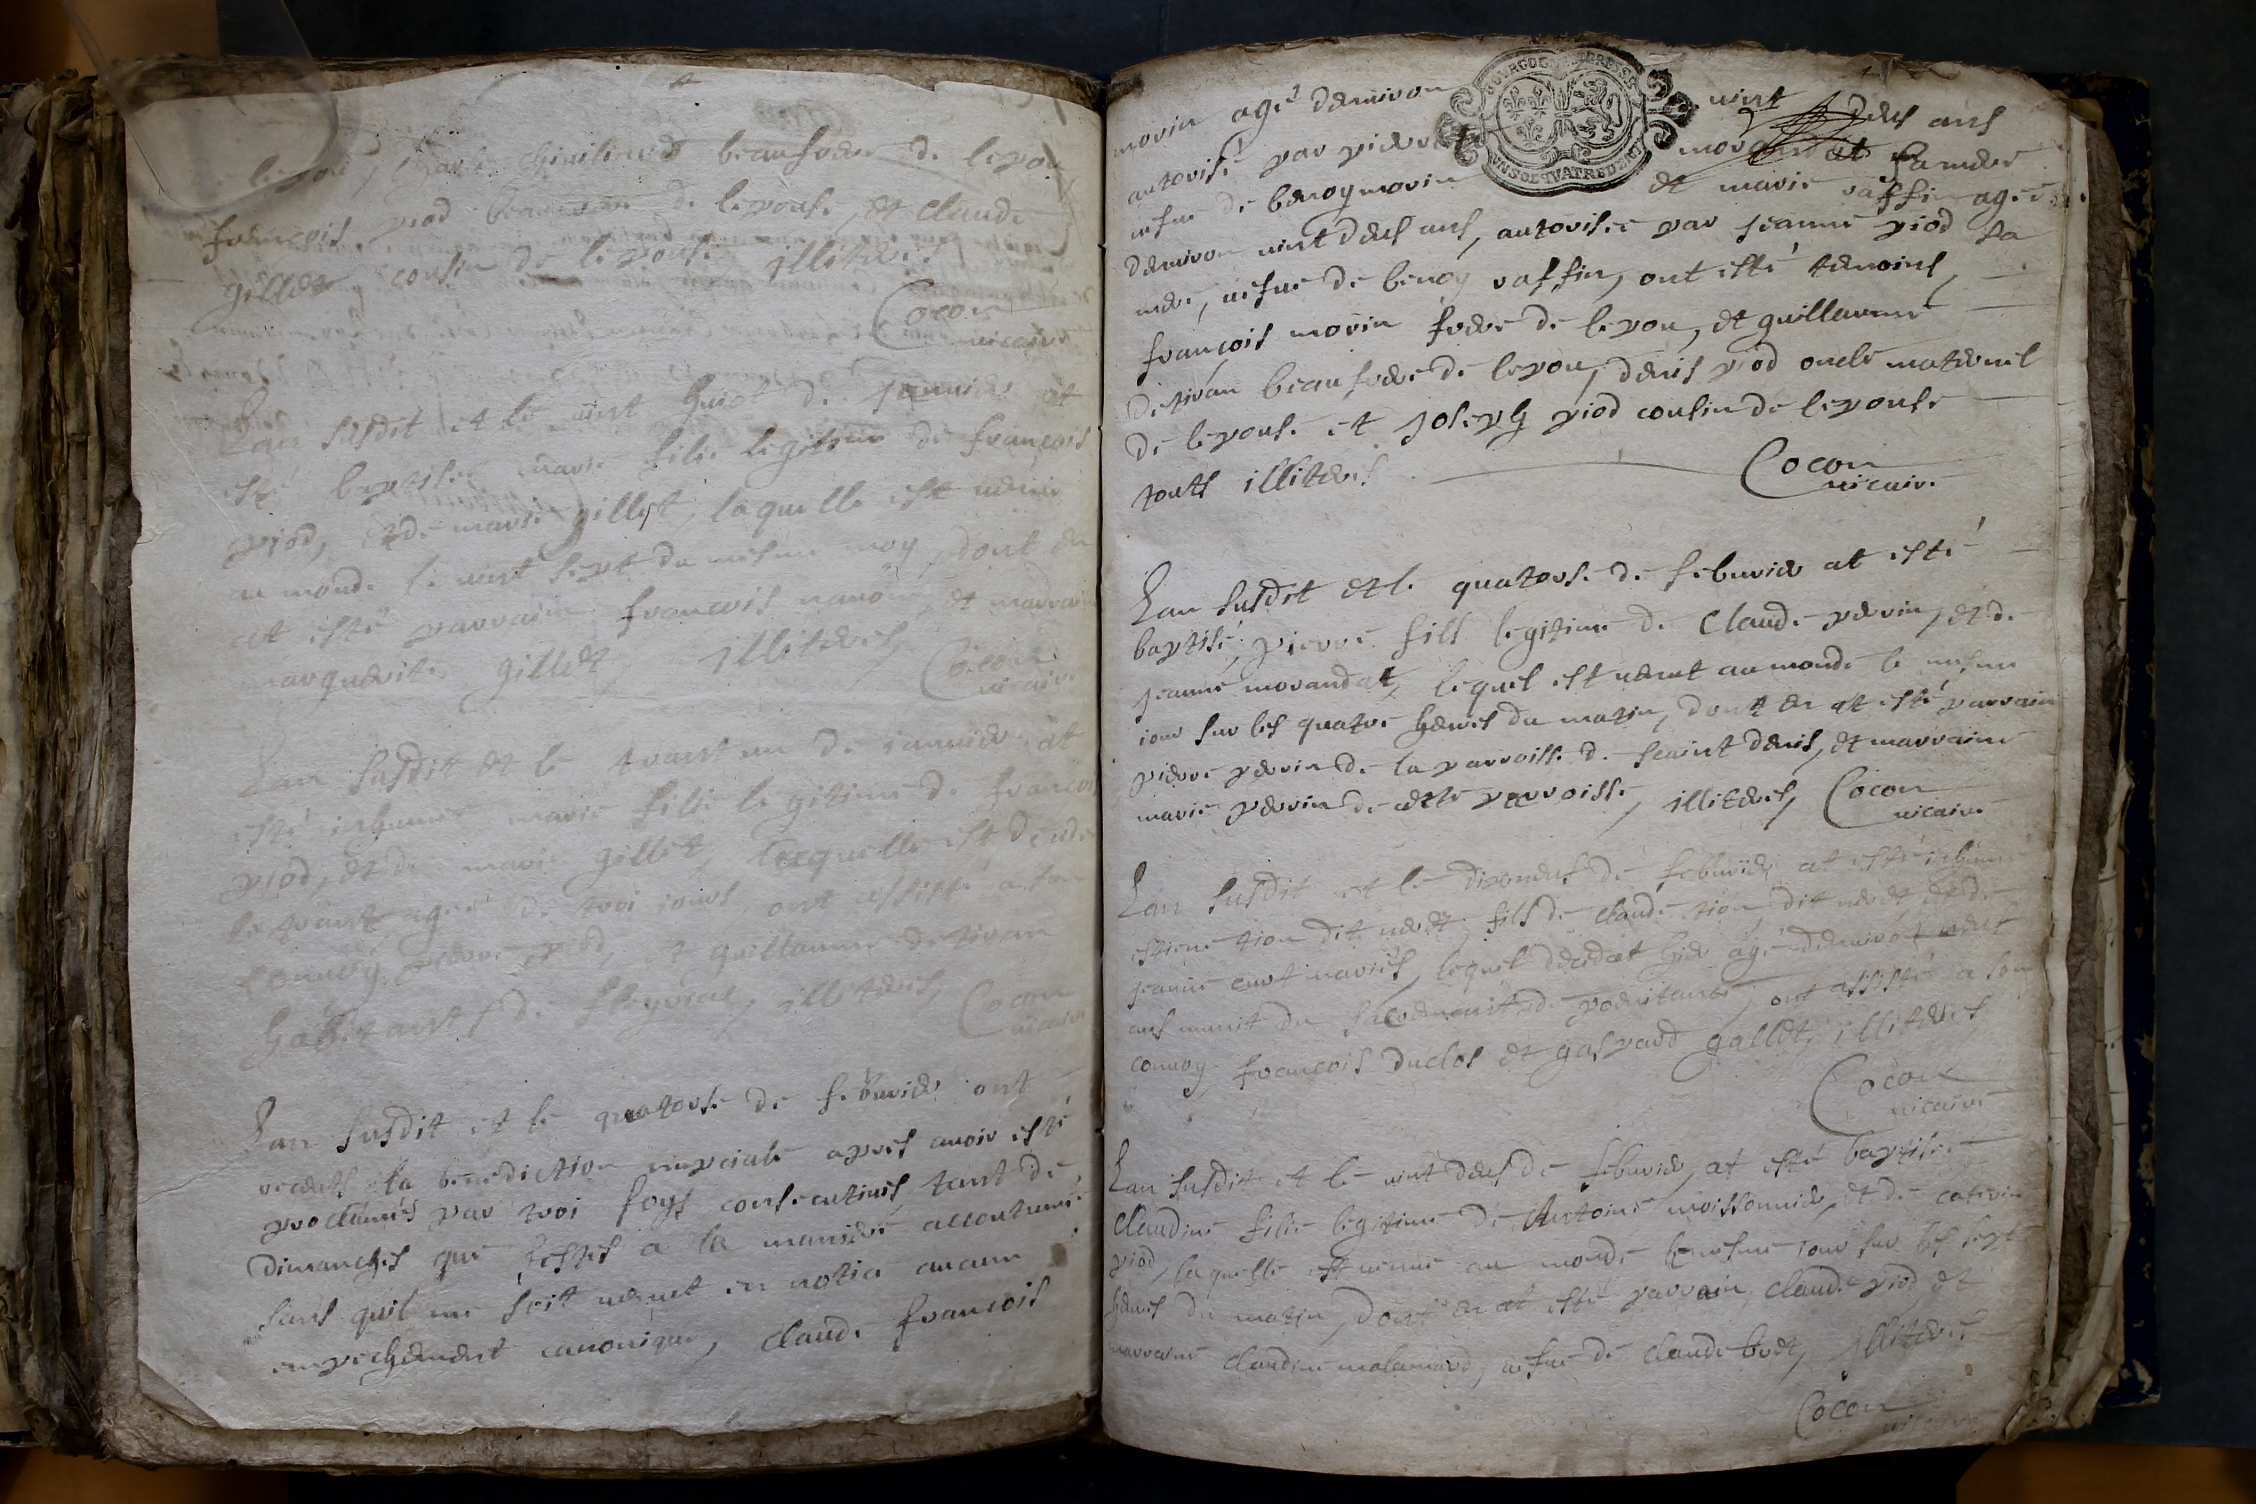 beaufrere de lepou
francois piod de lepouse, et Claude
gillet cousin de lepouse illiteres
Cocon
vicaire
Lan susdit et le vint huict de januier at
esté baptisée marie fille legitime de francois
piod, et de marie gillet, laquelle est venue
au monde le vint sept du mesme moy, dont en
at esté parrain francois et marraine
marguerite gillet illiteres,
Cocon
vicaire
Lan susdit et le trant un de januier at
esté inhumée marie fille legitime de francois
piod, et de marie gillet, laquelle est decedee
agee de troi jours, ont assisté a son
convoy pierre piod, et guillaume detivan
habitants de illiteres,
Cocon
vicaire
Lan susdit et le quatorse de feburier ont
receuts la benediction nupciale apres auoir esté
proclamés par troi foys consecutiues, tant de
dimanches que festes a la maniere accoutumé
sans quil me soit venut en notice aucun
empechement canonique, claude francois
morin agé demiron vint deus ans
autorisé par pierre morandat sa mere
vefue de benoy morin et marie raffin agée
demiron vint deus ans, autorisee par jeanne piod sa
mere, vefue de benoy raffin, ont esté temoins,
francois morin frere de lepou, et guillaume
detivan beaufrere de lepou, denis piod oncle maternel
de lepouse et joseph piod cousin de lepouse
touts illiteres
Cocon
vicaire
Lan susdit et le quatorse de feburier at esté
baptisé, pierre fils legitime de Claude perrin, et de
jeanne morandat, lequel est venut au monde le mesme
jour sur les quatre heures du matin, dont en at esté parrain
pierre perrin de la parroisse de seaint denis, et marraine
marie perrin de cette parroisse, illiteres, Cocon
vicaire
Lan susdit et le disneuf de feburier at esté inhumé
estiene tion dit veret fils de claude tion dit veret et de
jeanne curt mariés, lequel decedat hier agé demiron neuf
ans munit du sacrement de poenitance, ont assisté a son
convoy francois duclos et gaspard gallet, illiteres
Cocon
vicaire
Lan susdit et le vint deus de feburier at esté baptisée
claudine fille legitime de Antoine moissonnier, et de caterine
piod, laquelle est venue au monde le mesme jour sur les sept
heures du matin, dont en at esté parrain, claude piod et
marraine claudine malamard, vefue de claude bret, illiteres
Cocon